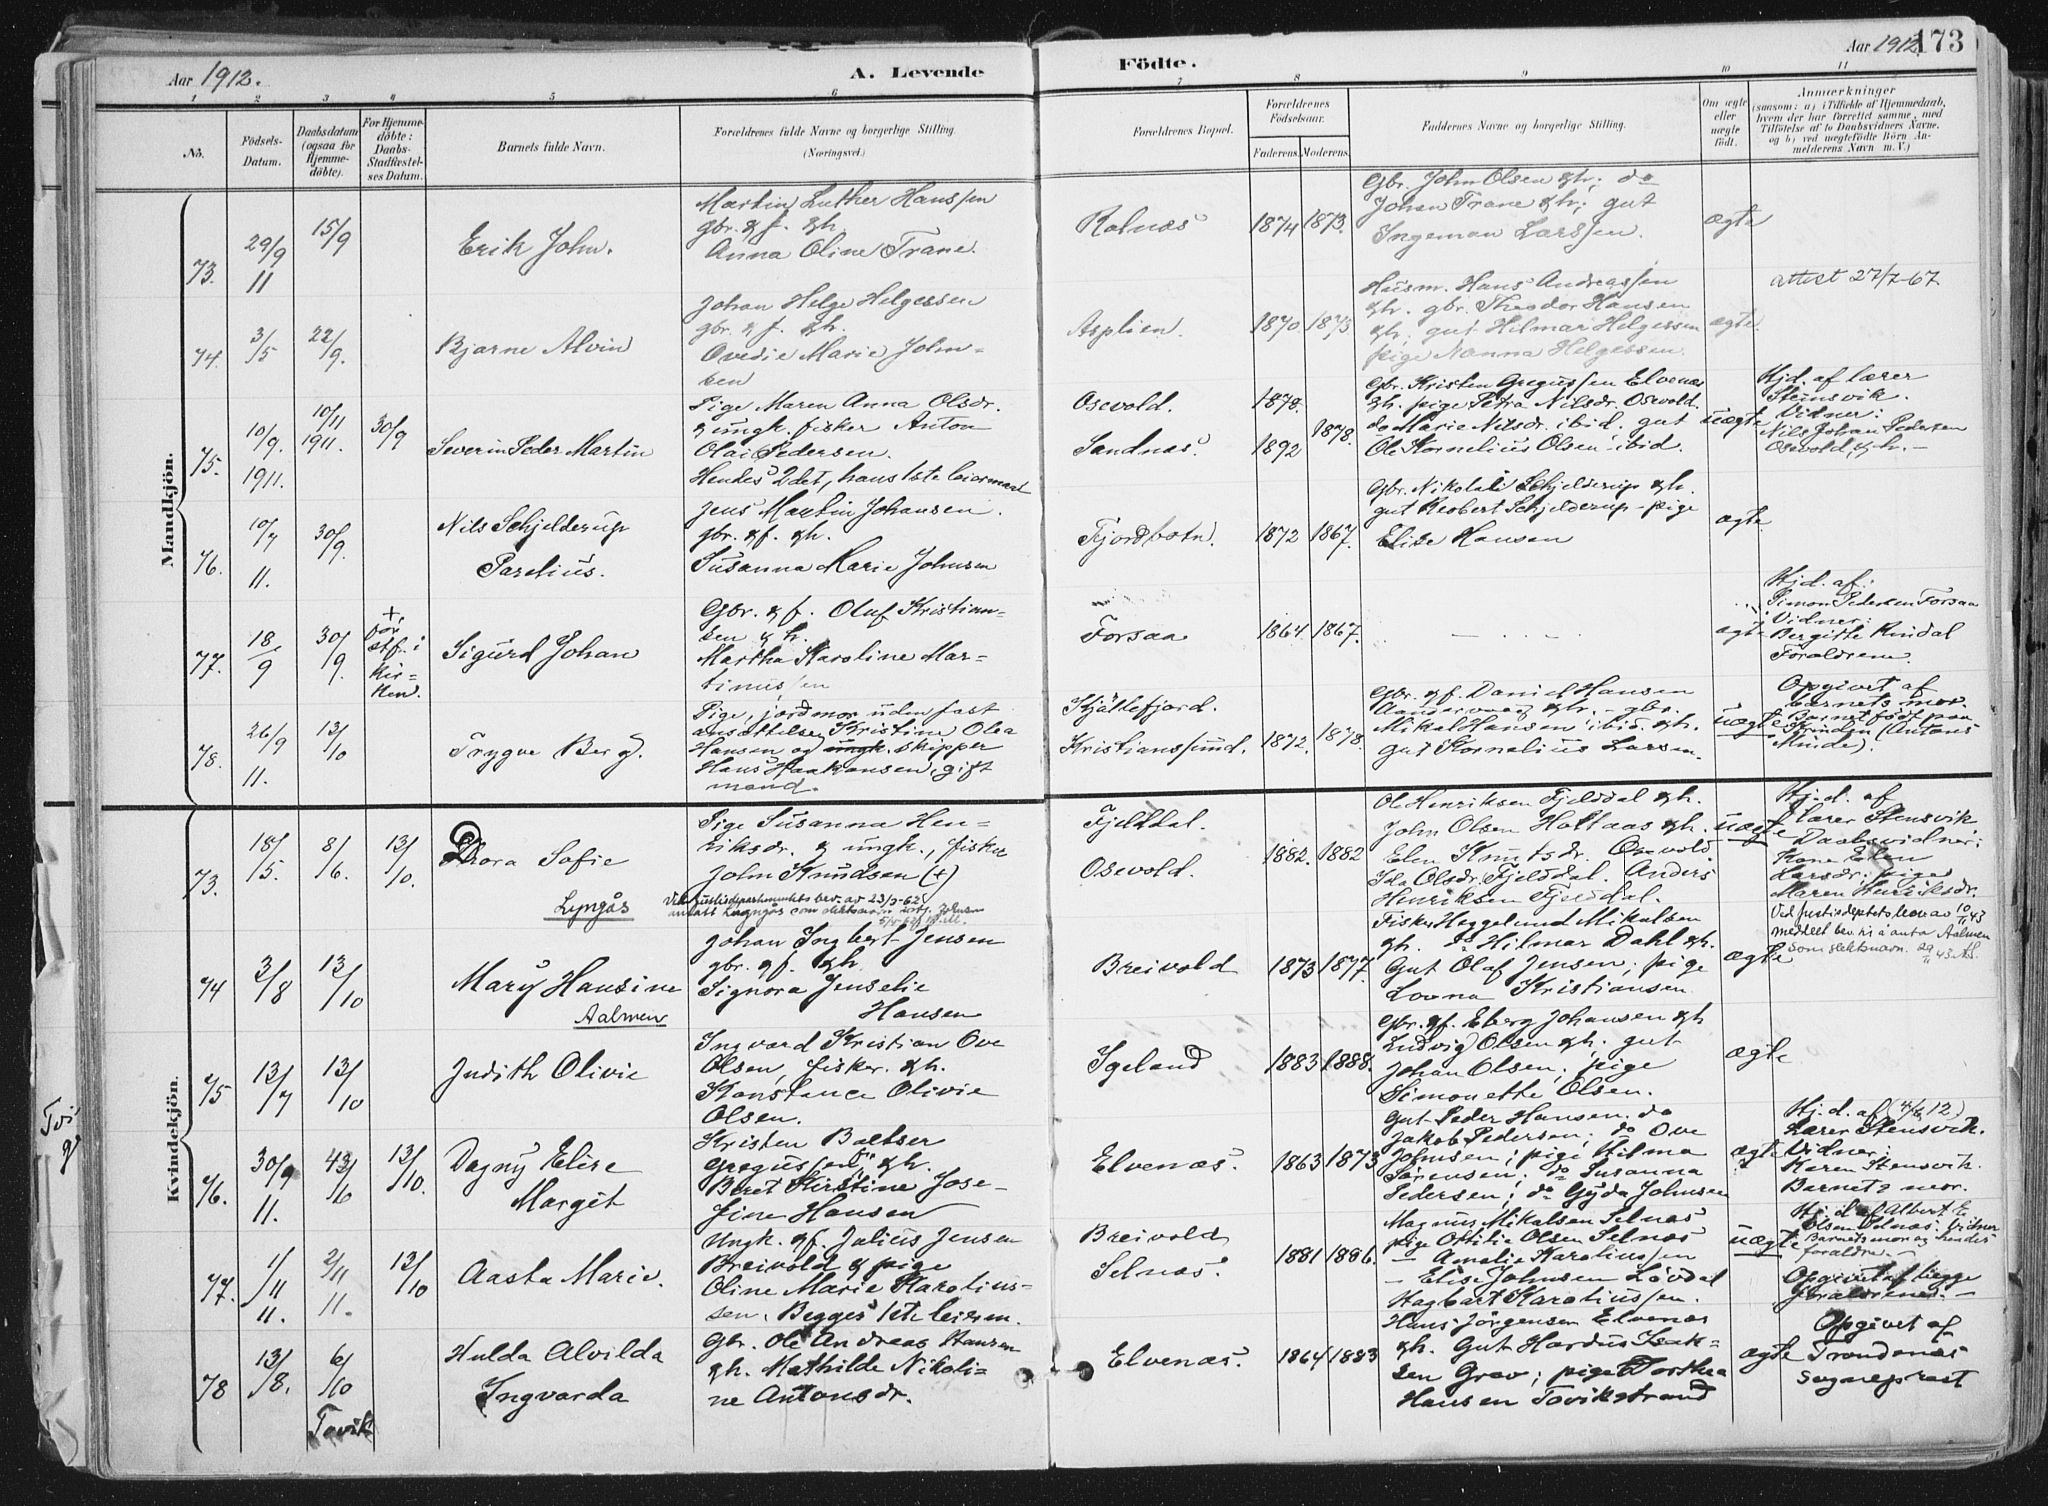 Aar 1912.
A. Levende
Födte.
Aar 1912
173
1 2 3 4 5 6 7 8 9 10 11
No.
Födsels-
Datum.
Daabsdatum
(ogsaa for
Hjemme-
döbte).
For Hjemme-
döbte:
Daabs-
Stadfæstel-
ses Datum.
Barnets fulde Navn.
Forældrenes fulde Navne og borgerlige Stilling.
(Næringsvei.)
Forældrenes Bopæl.
Forældrenes
Födselsaar.
Faderens. Moderens.
Faddernes Navne og borgerlige Stilling.
Om ægte
eller
uægte
födt.
Anmærkninger
(saasom: a) i Tilfælde af Hjemmedaab,
hvem der har forrettet samme, med
Tilföielse af to Daabsvidners Navne,
og b) ved uægtefödte Börn An-
melderens Navn m. V.)
Mandkjön.
73.
29/9
11
15/9
Erik John.
Martin Luther Hanssen
gbr. & f. & h.
Anna Oline Trane.
Rolnæs
1874 1873.
Gbr. John Olsen & h; do
Johan Trane & h; gut
Ingeman Larssen.
ægte
attest 27/7-67
74.
3/5
22/9.
Bjarne Alvin
Johan Helge Helgessen
gbr. & f. & h.
Ovedie Marie John-
sen
Asplien.
1870. 1873
Husm. Hans Andreassen
& h. gbr. Theodor Hansen
& h; gut Hilmar Helgessen
pige Nanna Helgessen.
ægte.
75.
10/9.
1911.
10/11
1911.
30/9
Severin Peder Martin
Pige Maren Anna Olsdr.
& ungk. fisker Anton
Olai Pedersen.
Hendes 2det, hans 1ste leiermaal
Osevold.
Sandnæs.
1878.
1892
1878.
Gbr. Kristen Gregussen Elvenæs
& h. pige Petra Nilsdr. Osevold.
do Marie Nilsdr. ibid. gut
Ole Kornelius Olsen ibid.
uægte
Hjd. af lærer
Stensvik.
Vidner:
Nils Johan Pedersen
Osevold, & h. -
76.
10/7
11.
30/9.
Nils Schjelderup
Parelius.
Jens Martin Johansen.
gbr. & f. & h.
Susanna Marie Johnsen
Fjordbotn.
1872 1867.
Gbr. Nikolai Schjelderup & h.
gut Reobert Schjelderup - pige
Elise Hansen
ægte
77.
18/9
30/9.
+
för
stf. i
Kir-
ken.
Sigurd Johan
Gbr. & f. Oluf Kristian-
sen & h.
Martha Karoline Mar-
tinussen
Forsaa
1864. 1867.
ægte
Hj. d. af:
Simon Pedersen Forsaa
Vidner:
Bergitte Rindal
Forældrene.
78.
26/9
11.
13/10
Trygve Berg.
Pige, jordmor uden fast
ansættelse Kristine Olea
Hansen og ungk. skipper
Hans Haakonsen, gift
mand.
Kjöttefjord.
Kristianssund.
1872. 1878.
Gbr. & f. Daniel Hansen
& h. - gbr.
Mikal Hansen ibid. & h.
gut Kornelius Larsen.
uægte
Opgivet af
barnets mor.
Barnet födt paa
Grinden (Antons
Minde).
Kvindekjön.
73.
18/5.
8/6.
13/10.
Dora Sofie
Lyngås
Pige Susanna Hen-
riksdr. & ungk., fisker
John Knudsen (+)
Ved Justisdepartementets bev. av 23/3-62
antatt Lyngås som slektsnavn
Fjelldal.
Osevold.
1882. 1882
Ole Henriksen Fjelddal & h.
John Olsen Holtaas & h.
Elen Knutsdr. Osevold.
Ida Olsdr. Fjelddal. Anders
Henriksen Fjelddal.
uægte
Hj. d. af
Lærer Stensvik
Daabsvidner:
Kone Elen
Larsdr; pige
Maren Henriksdr.
74
3/8
13/10
Mary Hansine
Aalmen
Johan Ingbert Jensen
gbr. & f. & h.
Signora Jenselie
Hansen
Breivold
1873 1877.
Fisker Heggelund Mikalsen
& h. do Hilmar Dahl & h.
Gut Olaf Jensen; pige
Lovna Kristiansen.
ægte
Ved Justisdeptets bev. av 10/11 43
meddelt bev. til å anta Aalmen
som slektsnavn. 29/11 43
75
13/7
13/10
Judith Olivie
Ingvard Kristian Ove
Olsen, fisker. & h.
Konstance Olivie
Olsen.
Igeland
1883 1888.
Gbr. & f. Eberg Johansen & h
Ludvig Olsen & h. gut
Johan Olsen; pige
Simonette Olsen.
ægte
76.
30/9
11.
13/10.
Dagny Elise
Margit
Kristen Baltser
Gregussen & h.
Beret Kirstine Jose-
fine Hansen
Elvenæs.
1863 1873
Gut Peder Hansen. do
Jakob Pedersen; do Ove
Johnsen; pige Hilma
Sörensen; do Susanna
Pedersen; do Gyda Johnsen
ægte
Hj. d. af (4/6 12)
Lærer Stensvik.
Vidner:
Karen Stensvik.
Barnets mor.
77.
1/11
11.
2/11
11.
13/10
Aasta Marie.
Ungk. & f. Julius Jensen
Breivold & pige
Oline Marie Karolius-
sen. Begges 1ste leierm.
Breivold
Selnæs.
1881 1886.
Magnus Mikalsen Selnæs
pige Ottilie Olsen Selnæs
- Amalie Karoliussen
- Elise Johnsen Lövdal
Hagbart Karoliussen.
uægte
Hj. d. af Albert E
Olsen Selnæs. Vidner
Barnets mor og hendes
foraldre. -
Opgivet af begge
forældrene. -
78
13/8.
6/10
Tovik
Hulda Alvilda
Ingvarda
Gbr. Ole Andreas Hansen
& h. Mathilde Nikoli-
ne Antonsdr.
Elvenæs.
1864 1883
Hans Jörgensen Elvenæs
& h. Gut Hardus Isak-
sen Grav; pige Dorthea
Hansen Tovikstrand
ægte
Opgivet af
Trondenæs
sogneprest